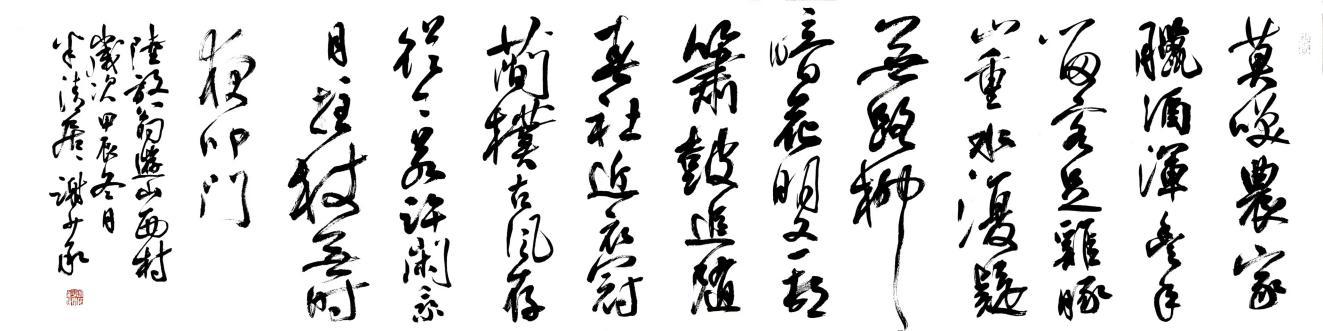 莫咲農家
臘酒渾豐年
留客足雞豚
山重水復疑
無路柳
暗花明又一邨
簫鼓追隨
春社近衣冠
簡樸古風存
從今若許閑乘
月拄杖無時
夜叩門
陸放翁遊山西村
歲次甲辰冬月
半清居謝少承